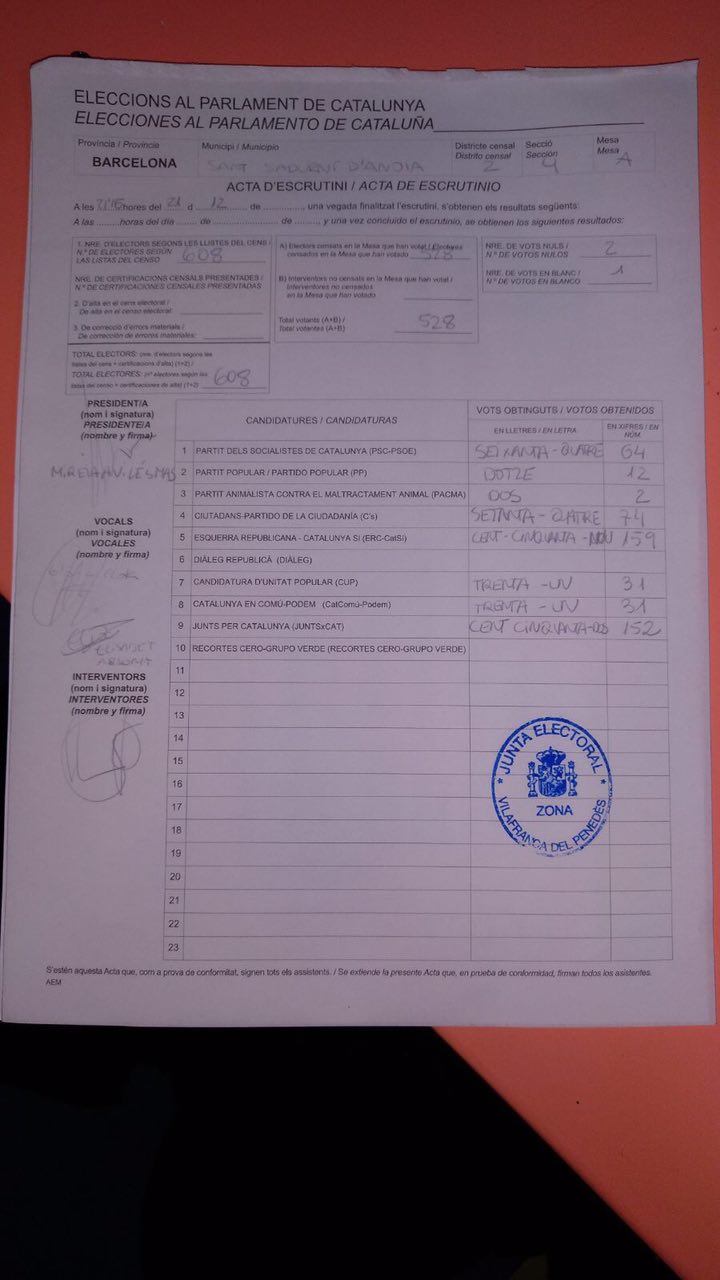 ELECCIONS AL PARLAMENT DE CATALUNYA
ELECCIONES AL PARLAMENTO DE CATALUÑA
Província / Provincia
BARCELONA
Municipi / Municipio
SANT SADURNÍ D'ANOIA
Districte censal
Distrito censal
2
Secció
Sección
4
Mesa
Mesa
A
ACTA D'ESCRUTINI / ACTA DE ESCRUTINIO
A les hores del 21 d 12 de, una vegada finalitzat l'escrutini, s'obtenen els resultats següents:
A las ........horas del día ....... de .................... de........, y una vez concluido el escrutinio, se obtienen los siguientes resultados:
1. NRE. D'ELECTORS SEGONS LES LLISTES DEL CENS /
N.º DE ELECTORES SEGÚN
LAS LISTAS DEL CENSO
608
NRE. DE CERTIFICACIONS CENSALS PRESENTADES /
N.º DE CERTIFICACIONES CENSALES PRESENTADAS
2. D'alta en el cens electoral /
De alta en el censo electoral:
3. De correcció d'errors materials /
De corrección de errores materiales:
TOTAL ELECTORS: (nre. d'electors segons les
llistes del cens + certificacions d'alta) (1+2) /
TOTAL ELECTORES: (nº electores según las
listas del censo + certificaciones de alta) (1+2)
608
A) Electors censats en la Mesa que han votat / Electores
censados en la Mesa que han votado
528
B) Interventors no censats en la Mesa que han votat /
Interventores no censados
en la Mesa que han votado
Total votants (A+B) /
Total votantes (A+B)
528
NRE. DE VOTS NULS /
N.º DE VOTOS NULOS
2
NRE. DE VOTS EN BLANC /
N.º DE VOTOS EN BLANCO
1
PRESIDENT/A
(nom i signatura)
PRESIDENTE/A
(nombre y firma)
VOCALS
(nom i signatura)
VOCALES
(nombre y firma)
INTERVENTORS
(nom i signatura)
INTERVENTORES
(nombre y firma)
CANDIDATURES / CANDIDATURAS
VOTS OBTINGUTS / VOTOS OBTENIDOS
EN LLETRES / EN LETRA
EN XIFRES / EN NÚM.
1 PARTIT DELS SOCIALISTES DE CATALUNYA (PSC-PSOE) SEIXANTA-QUATRE 64
2 PARTIT POPULAR / PARTIDO POPULAR (PP) DOTZE 12
3 PARTIT ANIMALISTA CONTRA EL MALTRACTAMENT ANIMAL (PACMA) DOS 2
4 CIUTADANS-PARTIDO DE LA CIUDADANÍA (C's) SETANTA-QUATRE 74
5 ESQUERRA REPUBLICANA - CATALUNYA SI (ERC-CatSI) CENT-CINQUANTA-NOU 159
6 DIÀLEG REPUBLICÀ (DIÀLEG)
7 CANDIDATURA D'UNITAT POPULAR (CUP) TRENTA-UN 31
8 CATALUNYA EN COMÚ-PODEM (CatComú-Podem) TRENTA-UN 31
9 JUNTS PER CATALUNYA (JUNTSxCAT) CENT CINQUANTA-DOS 152
10 RECORTES CERO-GRUPO VERDE (RECORTES CERO-GRUPO VERDE)
11
12
13
14
15
16
17
18
19
20
21
22
23
JUNTA ELECTORAL
ZONA
VILAFRANCA DEL PENEDÈS
S'estén aquesta Acta que, com a prova de conformitat, signen tots els assistents. / Se extiende la presente Acta que, en prueba de conformidad, firman todos los asistentes.
AEM